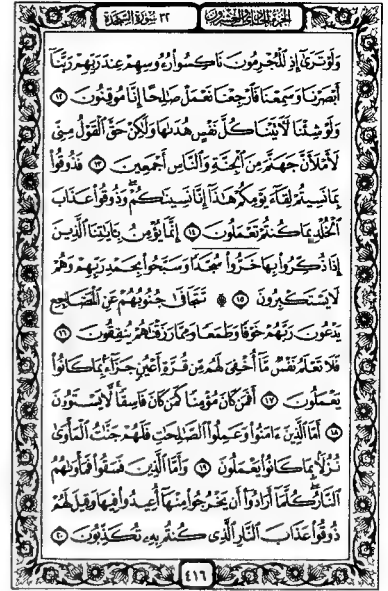 الجزء الحادي والعشرون ٣٢ سورة السجدة
وَلَوْ تَرَىٰٓ إِذِ ٱلْمُجْرِمُونَ نَاكِسُوا۟ رُءُوسِهِمْ عِندَ رَبِّهِمْ رَبَّنَآ
أَبْصَرْنَا وَسَمِعْنَا فَٱرْجِعْنَا نَعْمَلْ صَٰلِحًا إِنَّا مُوقِنُونَ ١٢
وَلَوْ شِئْنَا لَءَاتَيْنَا كُلَّ نَفْسٍ هُدَىٰهَا وَلَٰكِنْ حَقَّ ٱلْقَوْلُ مِنِّى
لَأَمْلَأَنَّ جَهَنَّمَ مِنَ ٱلْجِنَّةِ وَٱلنَّاسِ أَجْمَعِينَ ١٣ فَذُوقُوا۟
بِمَا نَسِيتُمْ لِقَآءَ يَوْمِكُمْ هَٰذَآ إِنَّا نَسِينَٰكُمْ وَذُوقُوا۟ عَذَابَ
ٱلْخُلْدِ بِمَا كُنتُمْ تَعْمَلُونَ ١٤ إِنَّمَا يُؤْمِنُ بِـَٔايَٰتِنَا ٱلَّذِينَ
إِذَا ذُكِّرُوا۟ بِهَا خَرُّوا۟ سُجَّدًا وَسَبَّحُوا۟ بِحَمْدِ رَبِّهِمْ وَهُمْ
لَا يَسْتَكْبِرُونَ ۩ ١٥ تَتَجَافَىٰ جُنُوبُهُمْ عَنِ ٱلْمَضَاجِعِ
يَدْعُونَ رَبَّهُمْ خَوْفًا وَطَمَعًا وَمِمَّا رَزَقْنَٰهُمْ يُنفِقُونَ ١٦
فَلَا تَعْلَمُ نَفْسٌ مَّآ أُخْفِىَ لَهُم مِّن قُرَّةِ أَعْيُنٍ جَزَآءًۢ بِمَا كَانُوا۟
يَعْمَلُونَ ١٧ أَفَمَن كَانَ مُؤْمِنًا كَمَن كَانَ فَاسِقًا ۚ لَّا يَسْتَوُۥنَ
١٨ أَمَّا ٱلَّذِينَ ءَامَنُوا۟ وَعَمِلُوا۟ ٱلصَّٰلِحَٰتِ فَلَهُمْ جَنَّٰتُ ٱلْمَأْوَىٰ
نُزُلًۢا بِمَا كَانُوا۟ يَعْمَلُونَ ١٩ وَأَمَّا ٱلَّذِينَ فَسَقُوا۟ فَمَأْوَىٰهُمُ
ٱلنَّارُ كُلَّمَآ أَرَادُوٓا۟ أَن يَخْرُجُوا۟ مِنْهَآ أُعِيدُوا۟ فِيهَا وَقِيلَ لَهُمْ
ذُوقُوا۟ عَذَابَ ٱلنَّارِ ٱلَّذِى كُنتُم بِهِۦ تُكَذِّبُونَ ٢٠
٤١٦